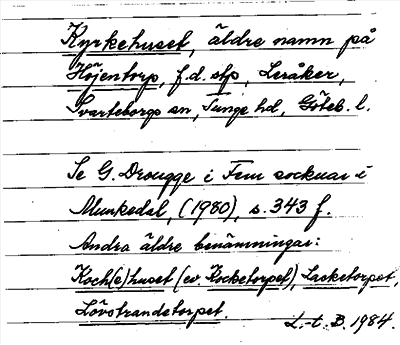 Kyrkehuset, äldre namn på
Höjentorp, f.d. stp, Leråker,
Svarteborgs sn, Tunge hd, Göteb. l.
Se G. Drougge i Fem socknar i
Munkedal, (1980), s. 343 f.
Andra äldre benämningar:
Koch(e)huset (ev. Kocketorpet), Lacketorpet,
Lövstrandetorpet.
L-t. B. 1984.